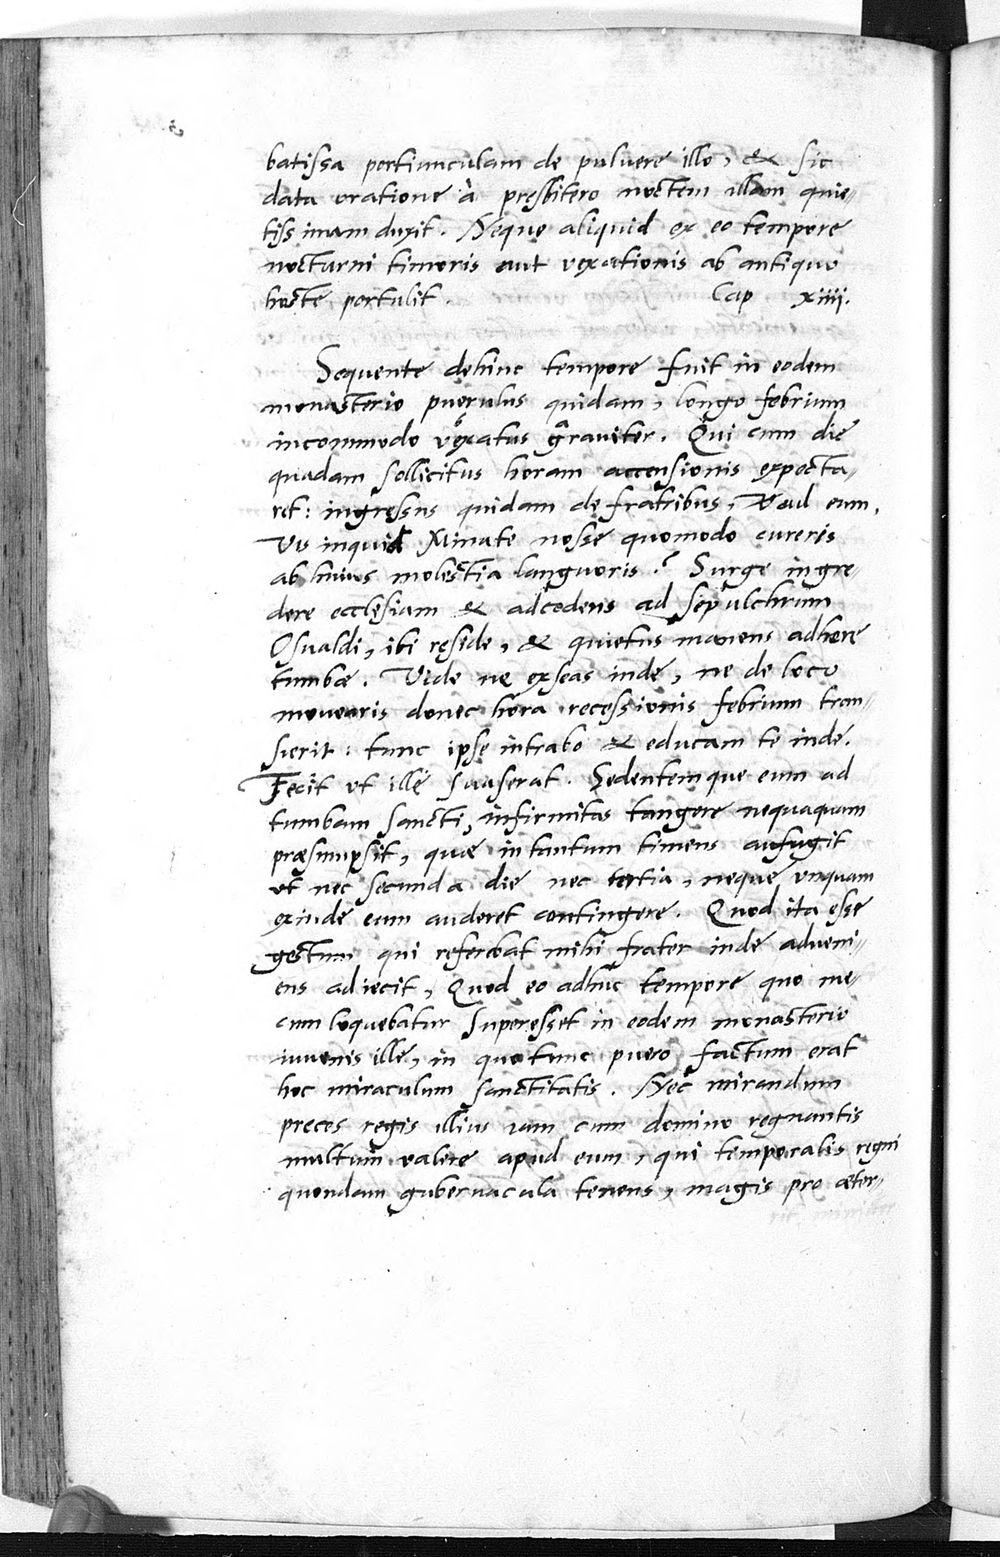 batissa portiunculam de pulvere illo, & sic
data oratione à presbitero noctem illam quie-
tissimam duxit. Neque aliquid ex eo tempore
nocturni timoris aut vexationis ab antiquo
hoste pertulit. Cap xiiij.
Sequente dehinc tempore fuit in eodem
monasterio puerulus quidam, longo febrium
incommodo vexatus graviter. Qui cum die
quadam sollicitus horam accensionis expecta-
ret: ingressus quidam de fratribus, ad eum,
Vis inquid Minate nosse quomodo cureris
ab huius molestia languoris? Surge ingre-
dere ecclesiam & adcedens ad sepulchrum
Osualdi, ibi reside, & quietus manens adhere
tumbæ. Vide ne exeas inde, ne de loco
movearis donec hora recessionis febrium tran-
sierit: tunc ipse intrabo & educam te inde.
Fecit ut ille suaserat. Sedentemque eum ad
tumbam sancti, infirmitas tangere nequaquam
præsumpsit, quæ in tantum timens aufugit
ut nec secunda die nec tertia, neque vnquam
exinde eum auderet contingere. Quod ita esse
gestum qui referebat mihi frater inde adveni-
ens adiecit, Quod eo adhuc tempore quo me-
cum loquebatur superesset in eodem monasterio
iuvenis ille, in quo tunc puero factum erat
hoc miraculum sanctitatis. Nec mirandum
preces regis illius iam cum domino regnantis
multum valere apud eum, qui temporalis regni
quondam gubernacula tenens, magis pro æter-